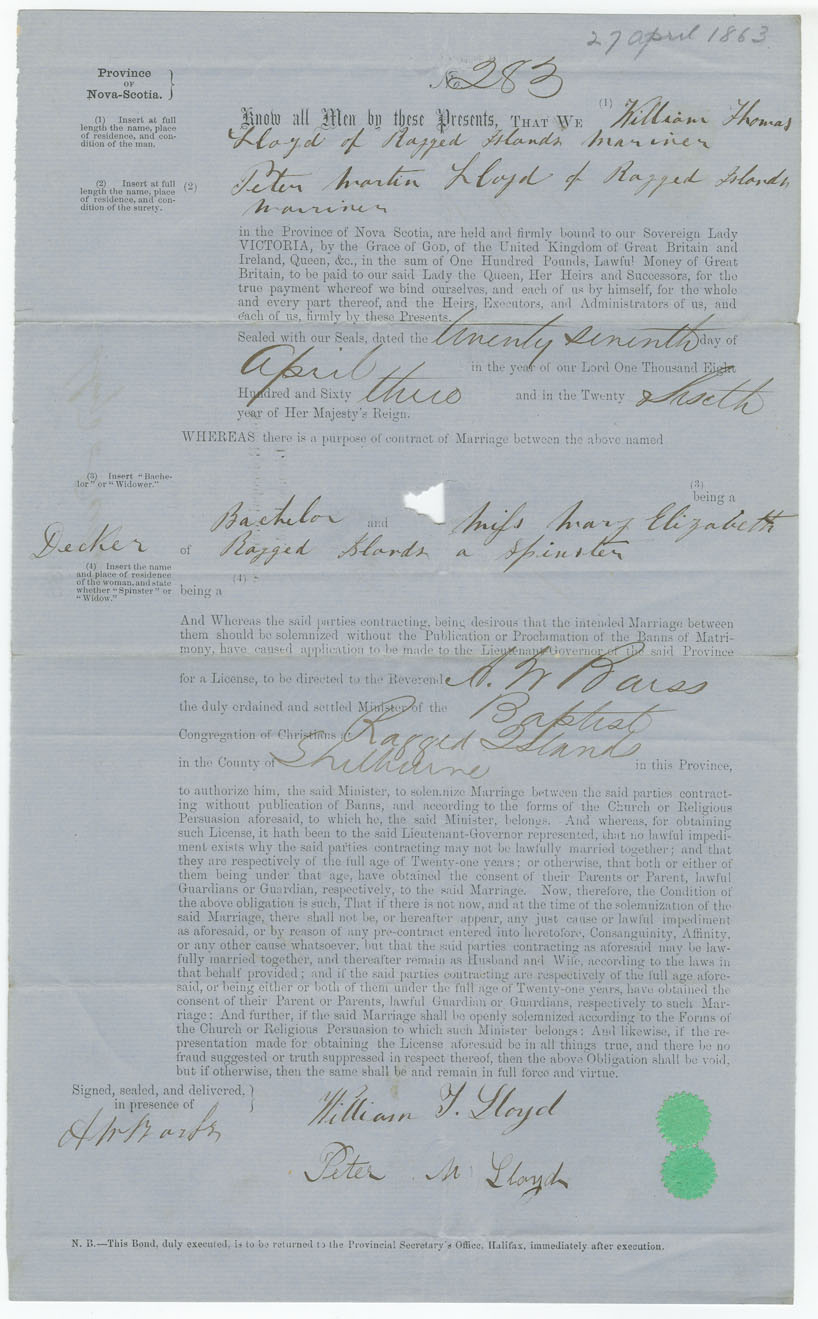 27 april 1863
Province
OF
Nova-Scotia.
No 283
(1) Insert at full
length the name, place
of residence, and con-
dition of the man.
Know all Men by these Presents, THAT WE (1) William Thomas
Lloyd of Ragged Islands mariner
(2) Insert at full
length the name, place
of residence, and con-
dition of the surety.
(2) Peter Martin Lloyd of Ragged Islands
marriner
in the Province of Nova Scotia, are held and firmly bound to our Sovereign Lady
VICTORIA, by the Grace of GOD, of the United Kingdom of Great Britain and
Ireland, Queen, &c., in the sum of One Hundred Pounds, Lawful Money of Great
Britain, to be paid to our said Lady the Queen, Her Heirs and Successors, for the
true payment whereof we bind ourselves, and each of us by himself, for the whole
and every part thereof, and the Heirs, Executors, and Administrators of us, and
each of us, firmly by these Presents.
Sealed with our Seals, dated the twenty seventh day of
April in the year of our Lord One Thousand Eight
Hundred and Sixty three and in the Twenty
year of Her Majesty's Reign.
WHEREAS there is a purpose of contract of Marriage between the above named
(3) Insert "Bache-
lor" or "Widower."
(3)
being a
Bachelor and Miss Mary Elizabeth
Decker of Ragged Islands a Spinster
(4) Insert the name
and place of residence
of the woman, and state
whether "Spinster" or
"Widow."
(4)
being a
And Whereas the said parties contracting, being desirous that the intended Marriage between
them should be solemnized without the Publication or Proclamation of the Banns of Matri-
mony, have caused application to be made to the Lieutenant-Governor of the said Province
for a License, to be directed to the Reverend A. W Barss
the duly ordained and settled Minister of the Baptist
Congregation of Christians at Ragged Islands
in the County of Shelburne in this Province,
to authorize him, the said Minister, to solemnize Marriage between the said parties contract-
ing without publication of Banns, and according to the forms of the Church or Religious
Persuasion aforesaid, to which he, the said Minister, belongs. And whereas, for obtaining
such License, it hath been to the said Lieutenant-Governor represented, that no lawful impedi-
ment exists why the said parties contracting may not be lawfully married together; and that
they are respectively of the full age of Twenty-one years; or otherwise, that both or either of
them being under that age, have obtained the consent of their Parents or Parent, lawful
Guardians or Guardian, respectively, to the said Marriage. Now, therefore, the Condition of
the above obligation is such, That if there is not now, and at the time of the solemnization of the
said Marriage, there shall not be, or hereafter appear, any just cause or lawful impediment
as aforesaid, or by reason of any pre-contract entered into heretofore, Consanguinity, Affinity,
or any other cause whatsoever, but that the said parties contracting as aforesaid may be law-
fully married together, and thereafter remain as Husband and Wife, according to the laws in
that behalf provided; and if the said parties contracting are respectively of the full age afore-
said, or being either or both of them under the full age of Twenty-one years, have obtained the
consent of their Parent or Parents, lawful Guardian or Guardians, respectively to such Mar-
riage: And further, if the said Marriage shall be openly solemnized according to the Forms of
the Church or Religious Persuasion to which such Minister belongs: And likewise, if the re-
presentation made for obtaining the License aforesaid be in all things true, and there be no
fraud suggested or truth suppressed in respect thereof, then the above Obligation shall be void,
but if otherwise, then the same shall be and remain in full force and virtue.
Signed, sealed, and delivered,
in presence of
A W Barss
William T. Lloyd
Peter M Lloyd
N. B.—This Bond, duly executed, is to be returned to the Provincial Secretary's Office, Halifax, immediately after execution.